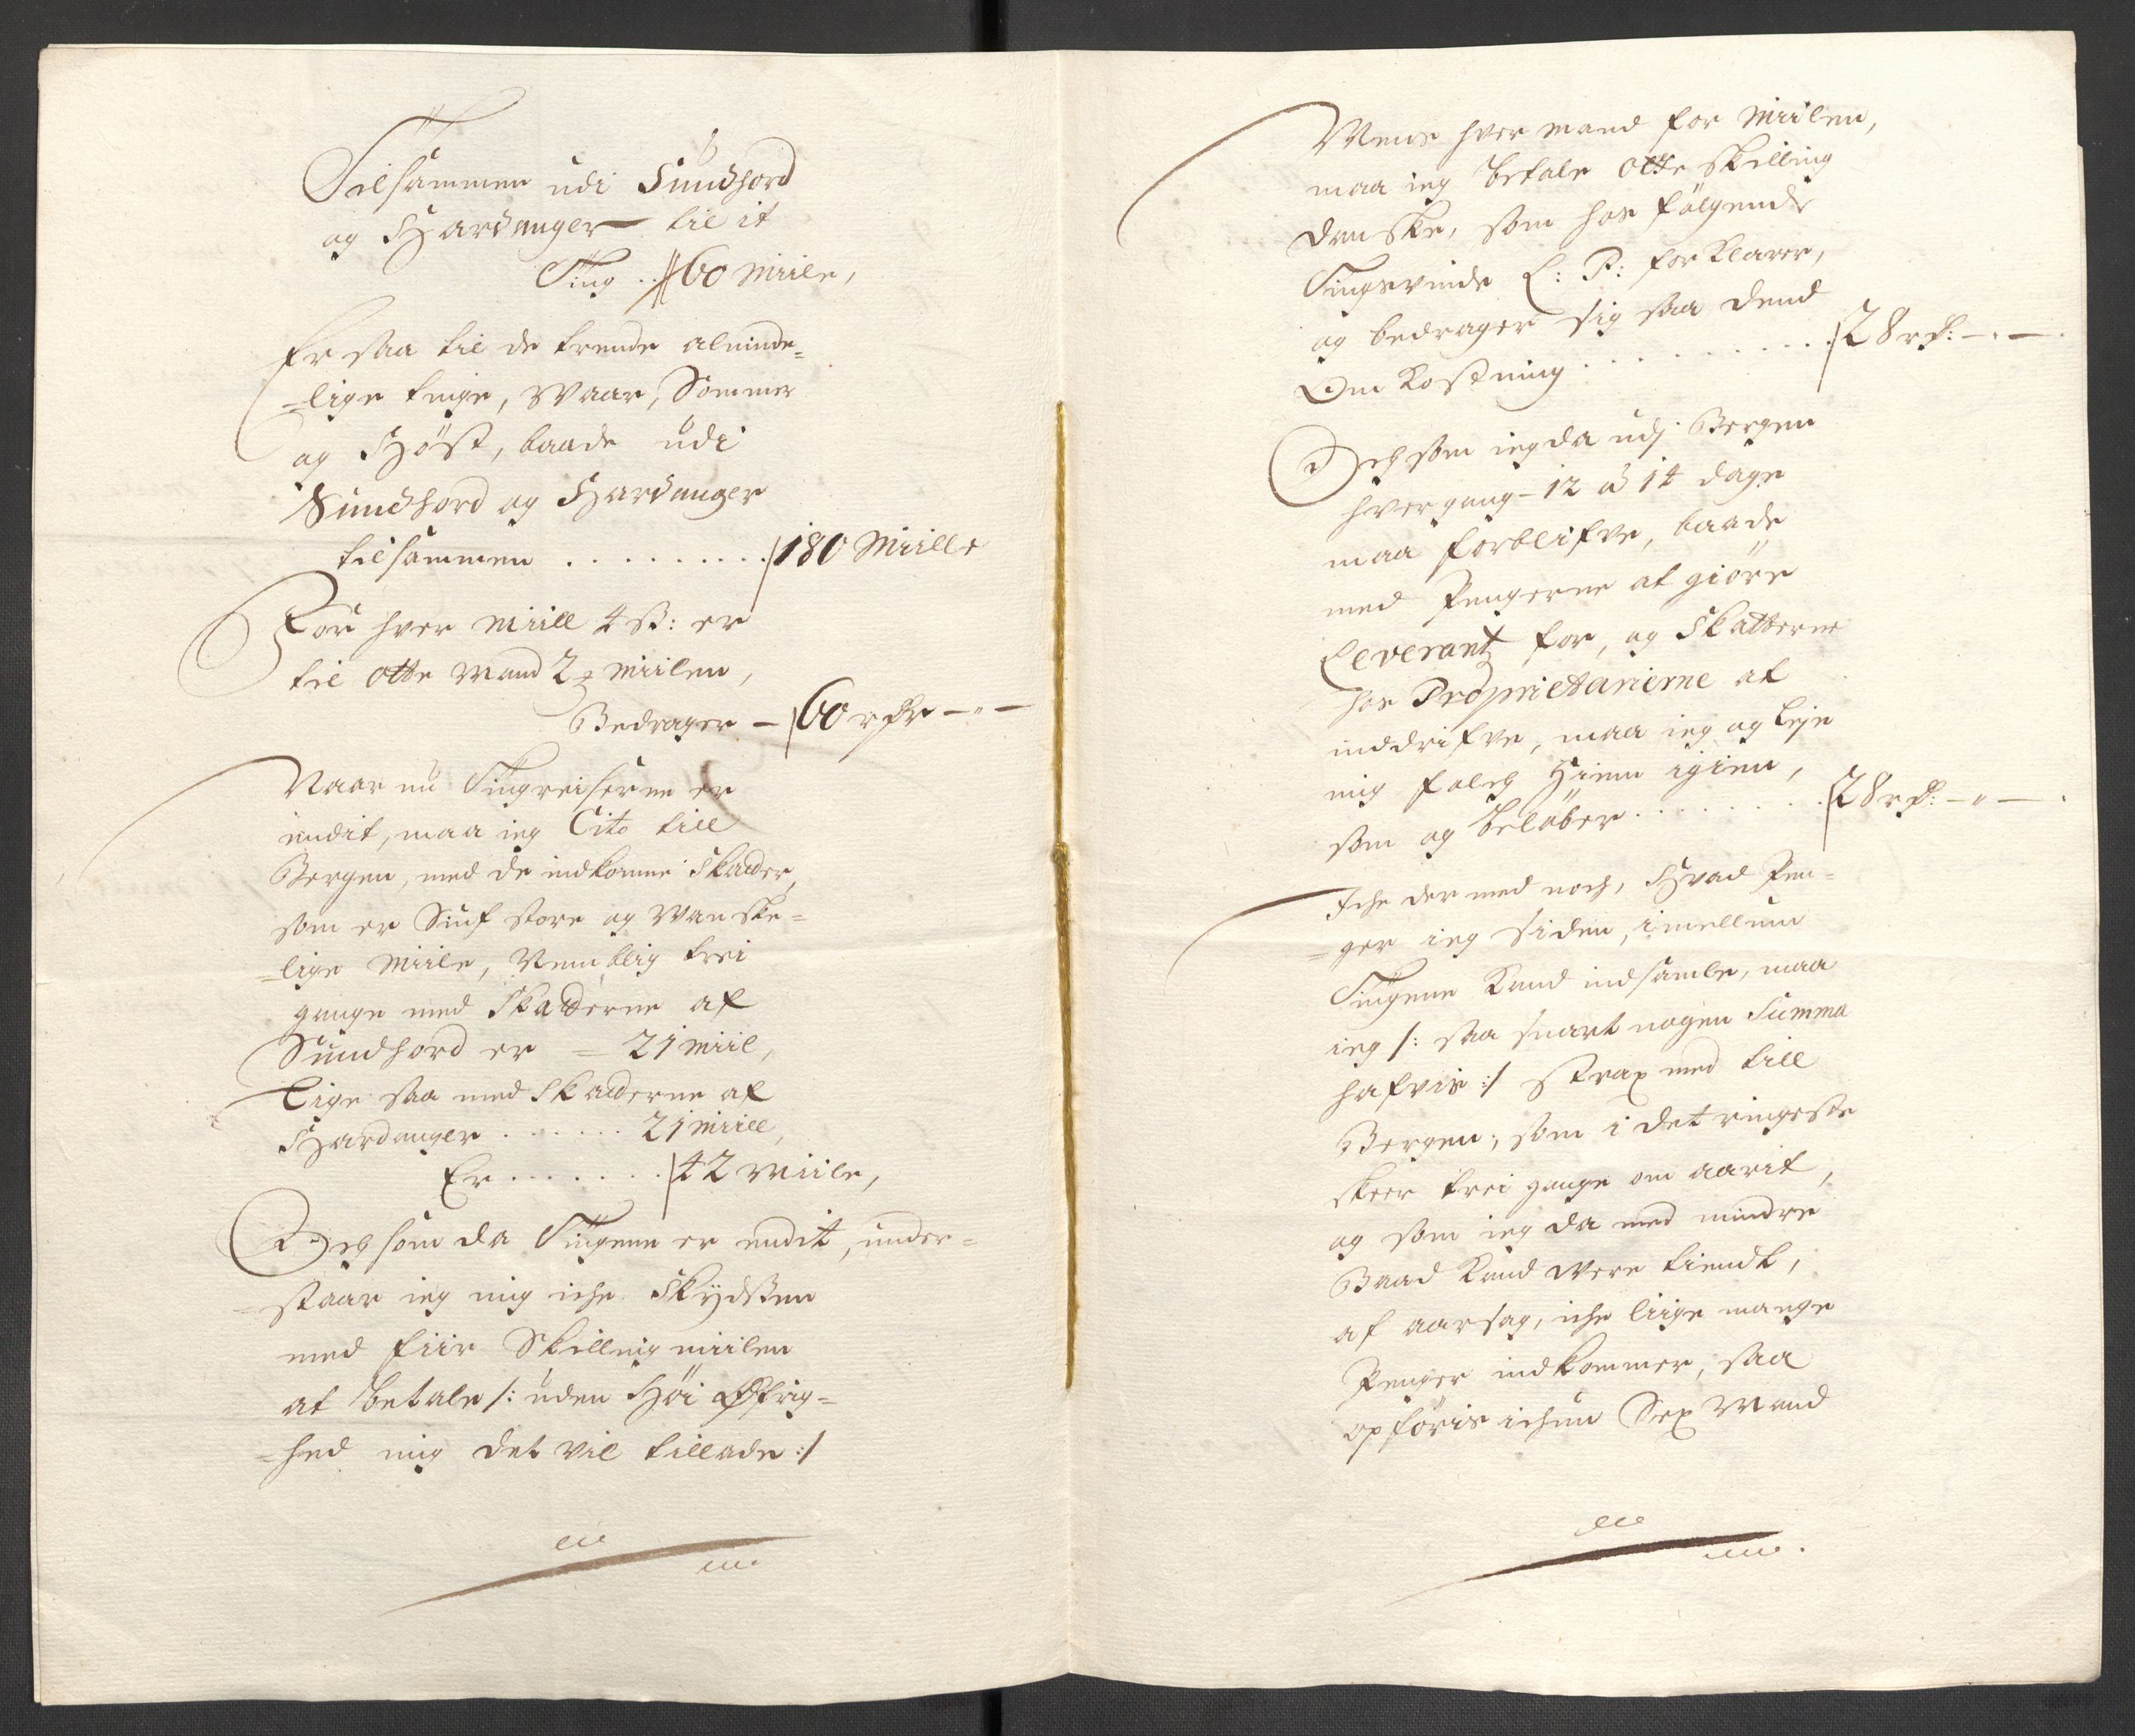 Tilsammen udi Sundhord
og Hardanger til it
Ting .. 60 Miile,
Er saa til de trende alminde-
-lige tinge, Waar, Sommer
og Høst, baade udi
Sundhord og Hardanger
tilsammen ......... 180 Miille
For hver Miill 4 s: er
til otte Mand 2 miilen,
Bedrager - 60 rdr - " -
Naar nu Tingreiserne er
endit, maa ieg Cito till
Bergen, med de indkomne Skatter,
som er Siuf store og Wanske-
-lige Miile, Nemblig trei
gange med Skatterne af
Sundhord er = 21 miil,
Lige saa med Skatterne af
Hardanger ...... 21 miill,
Er ....... 42 Miile,
Och som da Tingene er endit, under-
-staar ieg mig iche Skydssen
med fiir Skilling miilen
at betale /: uden Høi Øfrig-
-hed mig det vil tillade :/
Mens hver mand for Miilen,
maa ieg betale otte skilling
danske, som hos følgende
Tingsvinde L: P: forklarer,
og bedrager sig saa dend
Omkostning ........... 28 rd: - " -
Och som ieg da udj Bergen
hvergang - 12 à 14 dage
maa forblifve, baade
med Pengerne at giøre
Leverantz for, og Skatterne
hos Proprietarierne at
inddrifve, maa ieg og leje
mig folch Hiem igien,
som og beløber ........ 28 rd: - " -
Iche der med noch, Hvad Pen-
-ger ieg siden, imellum
Tingene Kand indsamle, maa
ieg /: saa snart nogen Summa
hafvis :/ strax med till
Bergen, som i det ringeste
skeer trei gange om aarit,
og som ieg da med mindre
Baad Kand were tiendt,
af aarsag, iche liige mange
Penger indkommer, saa
opføris ichun Sex Mand